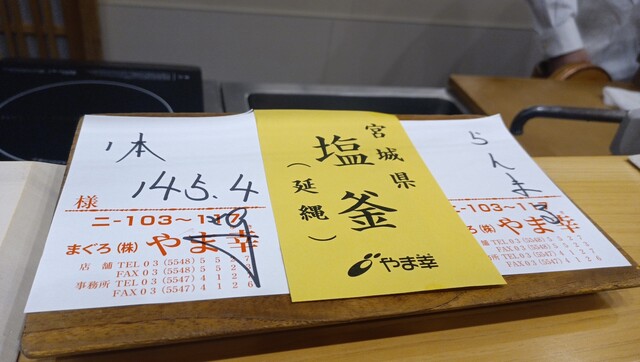 1本
145.4
様
ニ-103~117
まぐろ(株)やま幸
店舗 TEL 03(5548)5527
FAX 03(5548)5522
事務所 TEL 03(5547)4127
FAX 03(5547)4126
宮城県
塩釜
(延縄)
やま幸
ニ-103~117
まぐろ(株)やま幸
店舗 TEL 03(5548)5527
FAX 03(5548)5522
事務所 TEL 03(5547)4127
FAX 03(5547)4126